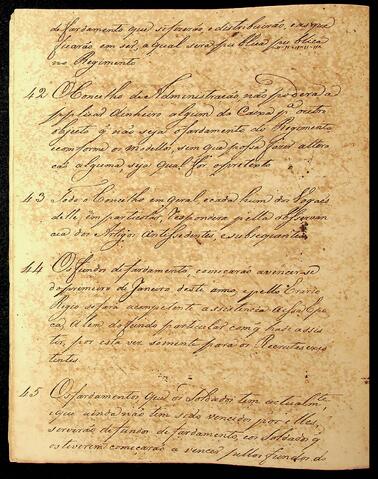 de fardamento que se fizerão, e destribuirão, e as que
ficarão em ser, a qual será publica
no Regimento
42 O Concelho de Administração, não poderá a
pplicar dinheiro algum da Caixa pª outro
objecto q̃ não seja o fardamento do Regimento
conforme os modellos, sem que possa fazer altera
cão alguma, seja qual for o pretexto
43 Todo o Concelho em geral, e cada hum dos Vogaes
delle, em particular, responderá pella observan
cia dos Artigos Antessedentes, e subsequentes
44 Os fundos de fardamento, comecarão a vencerse
do primeiro de Janeiro deste anno, e pello Erario
Regio se fará a competente assistencia
Alem do fundo particular com q̃ ha de assis
tir, por esta vez somente para os Recrutas exis
tentes.
45 Os fardamentos que os Soldados tem actualmte
e que ainda não tem sido vencidos por elles,
servirão de fundos de fardamento, e os Soldados q̃
os tiverem comecarão a vencer pellos fundos do